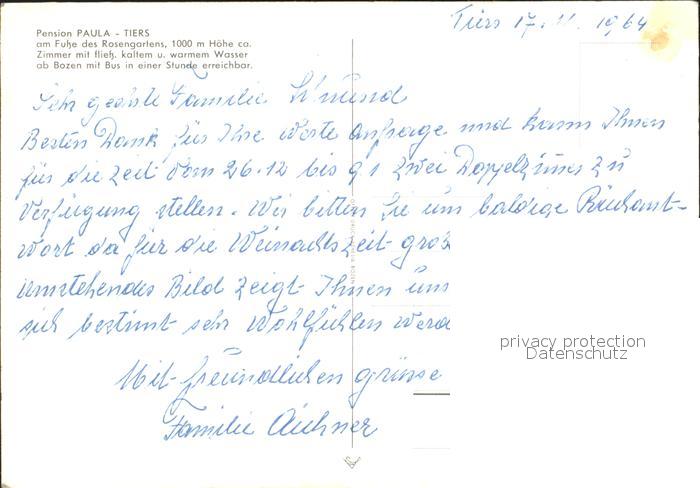 Pension PAULA - TIERS
am Fuße des Rosengartens, 1000 m Höhe ca.
Zimmer mit fließ. kaltem u. warmem Wasser
ab Bozen mit Bus in einer Stunde erreichbar.
Tiers 17. 11. 1964
Sehr geehrte Familie
Besten Dank für Ihre werte Anfrage und kann Ihnen
für die Zeit vom 26.12 bis 9 1 zwei Doppelzimer zu
Verfügung stellen. Wir bitten Sie um baldige Rückant-
wort da für die Weinachtszeit groß
umstehendes Bild zeigt Ihnen uns
sich bestimt sehr Wohlfühlen werd
Mit freundlichen grüsse
Familie Aichner
privacy protection
Datenschutz